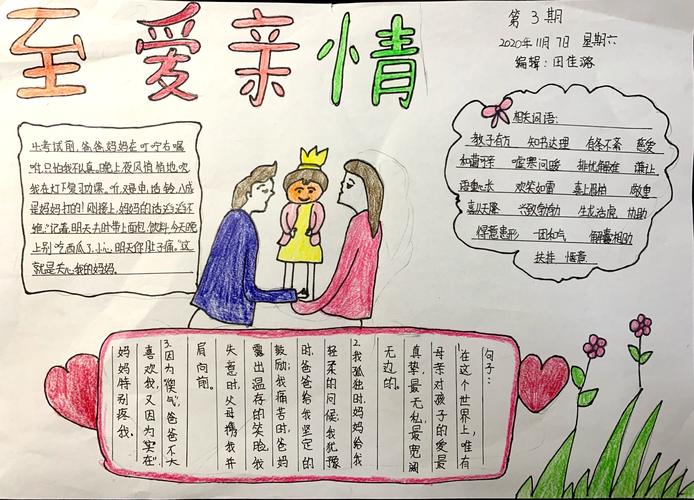 至爱亲情
第3期
2020年11月7日 星期六
编辑:田佳
考试前,爸爸妈妈在叮咛右嘱
咐,只怕我不认真。晚上,夜风悄悄地吹
我在灯下复习功课。听,电话铃,八成
是妈妈打的!刚接上,妈妈的话滔滔不
绝。“记着,明天去时带上面包、饮料,今天晚
上别吃西瓜了,小心明天你肚子痛。”这
就是关心我的妈妈。
相关词语:
教子有方 知书达理 有条不紊 慈爱
和蔼可亲 嘘寒问暖 排忧解难 谦让
语重心长 欢笑如雷 喜上眉梢 敬重
喜从天降 兴致勃勃 生龙活虎 协助
得意忘形 一团和气 解囊相助
扶持 惬意
句子:
1.在这个世界上,唯有
母亲对孩子的爱最
真挚、最无私、最宽阔
无边的。
2.我孤独时,妈妈给我
轻柔的问候;我犹豫
时,爸爸给我坚定的
鼓励;我痛苦时,爸妈
露出温存的笑脸;我
失意时,父母携我并
肩向前。
3.因为“傻气”,爸爸不大
喜欢我,又因为“实在”
妈妈特别疼我.